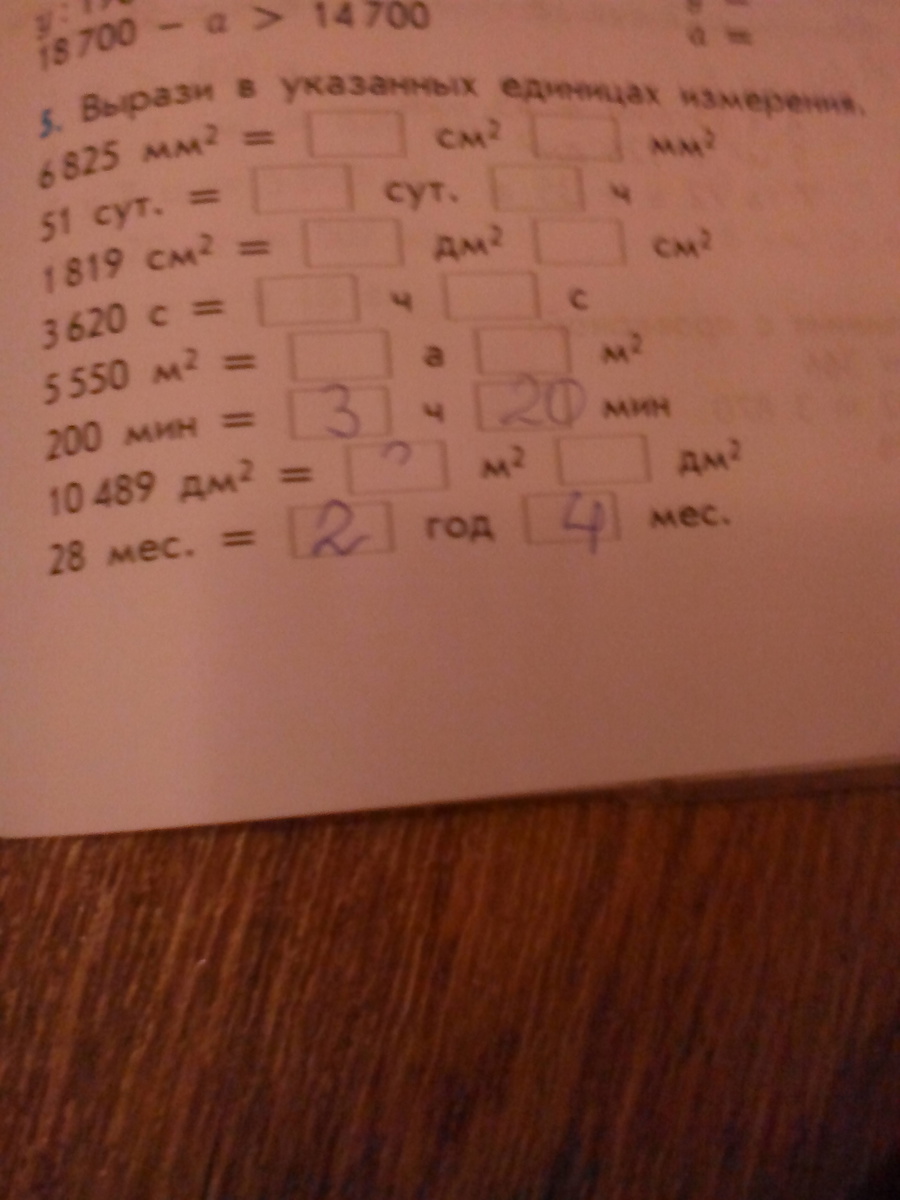 18 700 − a > 14 700
a =
5. Вырази в указанных единицах измерения.
6 825 мм² = см² мм²
51 сут. = сут. ч
1 819 см² = дм² см²
3 620 с = ч с
5 550 м² = а м²
200 мин = 3 ч 20 мин
10 489 дм² = м² дм²
28 мес. = 2 год 4 мес.